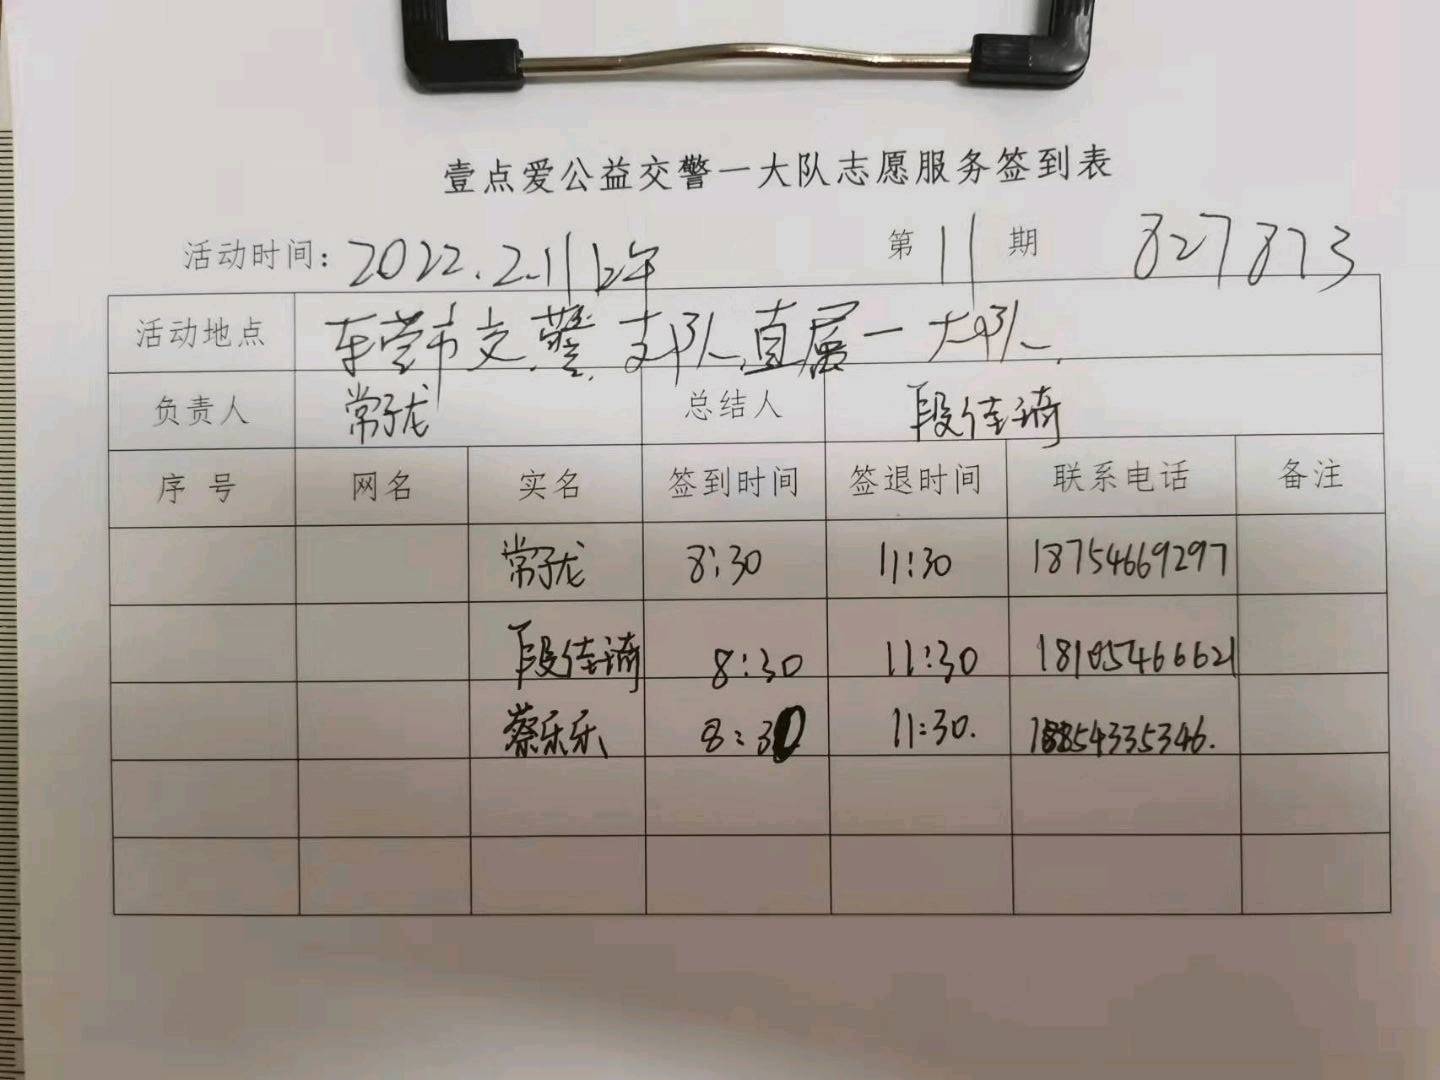 壹点爱公益交警一大队志愿服务签到表
活动时间: 2022.2.11上午 第 11 期 827873
活动地点 东营市交警支队直属一大队
负责人 常子龙 总结人 段佳琦
序号 网名 实名 签到时间 签退时间 联系电话 备注
常子龙 8:30 11:30 18754669297
段佳琦 8:30 11:30 18105466621
蔡乐乐 8:30 11:30. 18854335346.